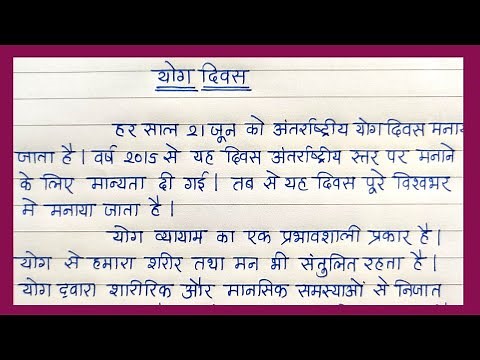 योग दिवस
हर साल 21 जून को अंतर्राष्ट्रीय योग दिवस मनाय
जाता है। वर्ष 2015 से यह दिवस अंतर्राष्ट्रीय स्तर पर मनाने
के लिए मान्यता दी गई। तब से यह दिवस पूरे विश्वभर
मे मनाया जाता है।
योग व्यायाम का एक प्रभावशाली प्रकार है।
योग से हमारा शरीर तथा मन भी संतुलित रहता है।
योग द्वारा शारीरिक और मानसिक समस्याओं से निजात